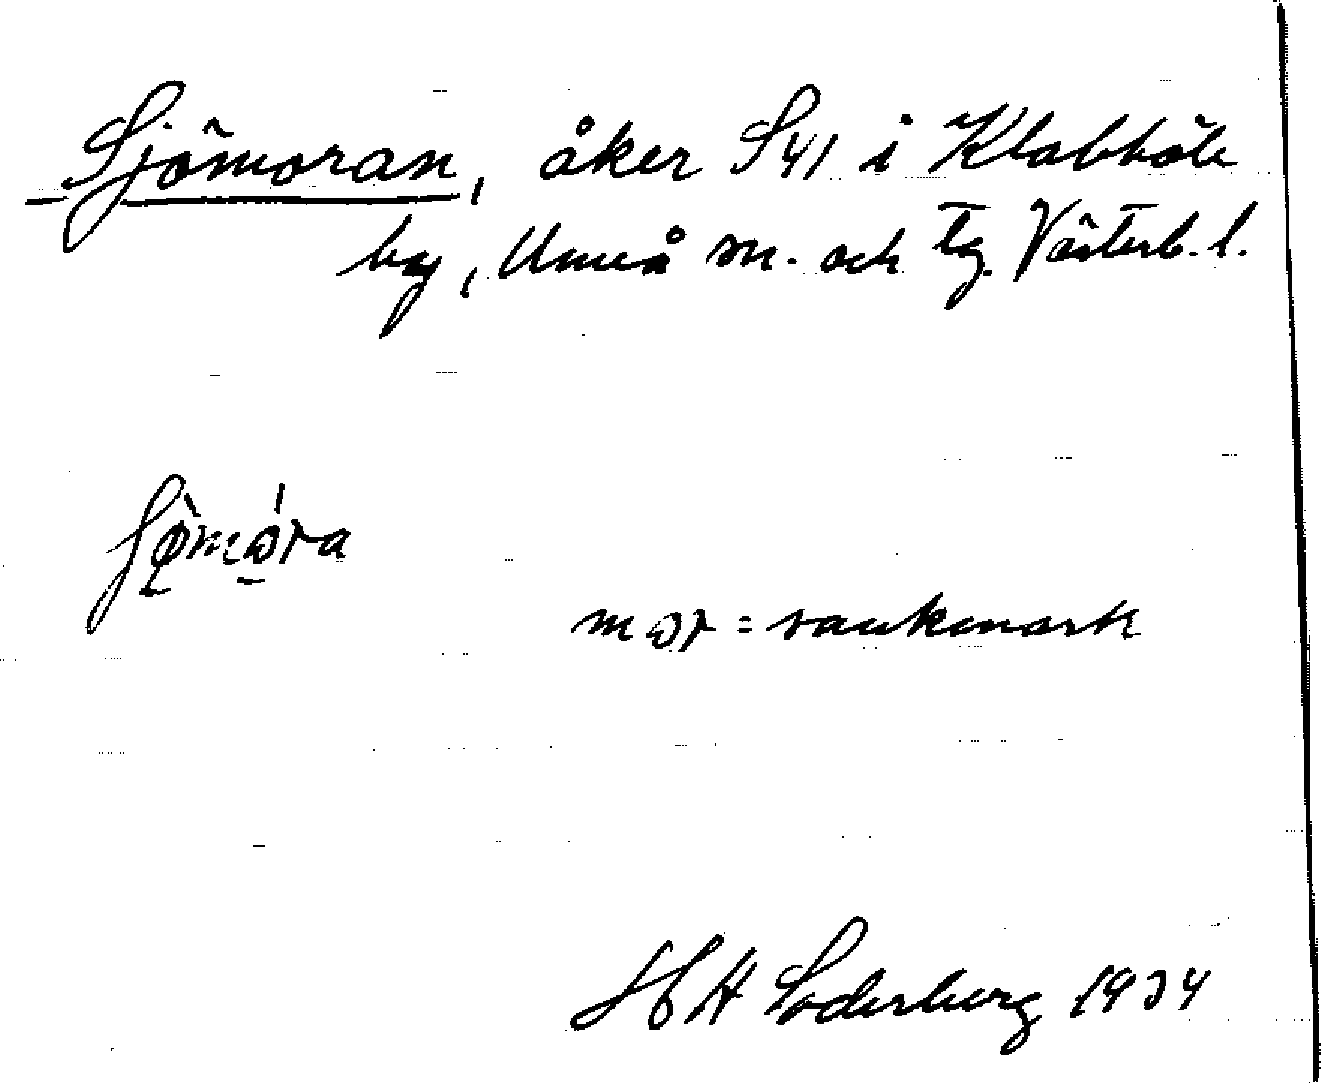 Sjömoran, åker S41 i Klabböle
by, Umeå sn. och tg. Västerb. l.
mɷr = sankmark
H A Söderberg 1934